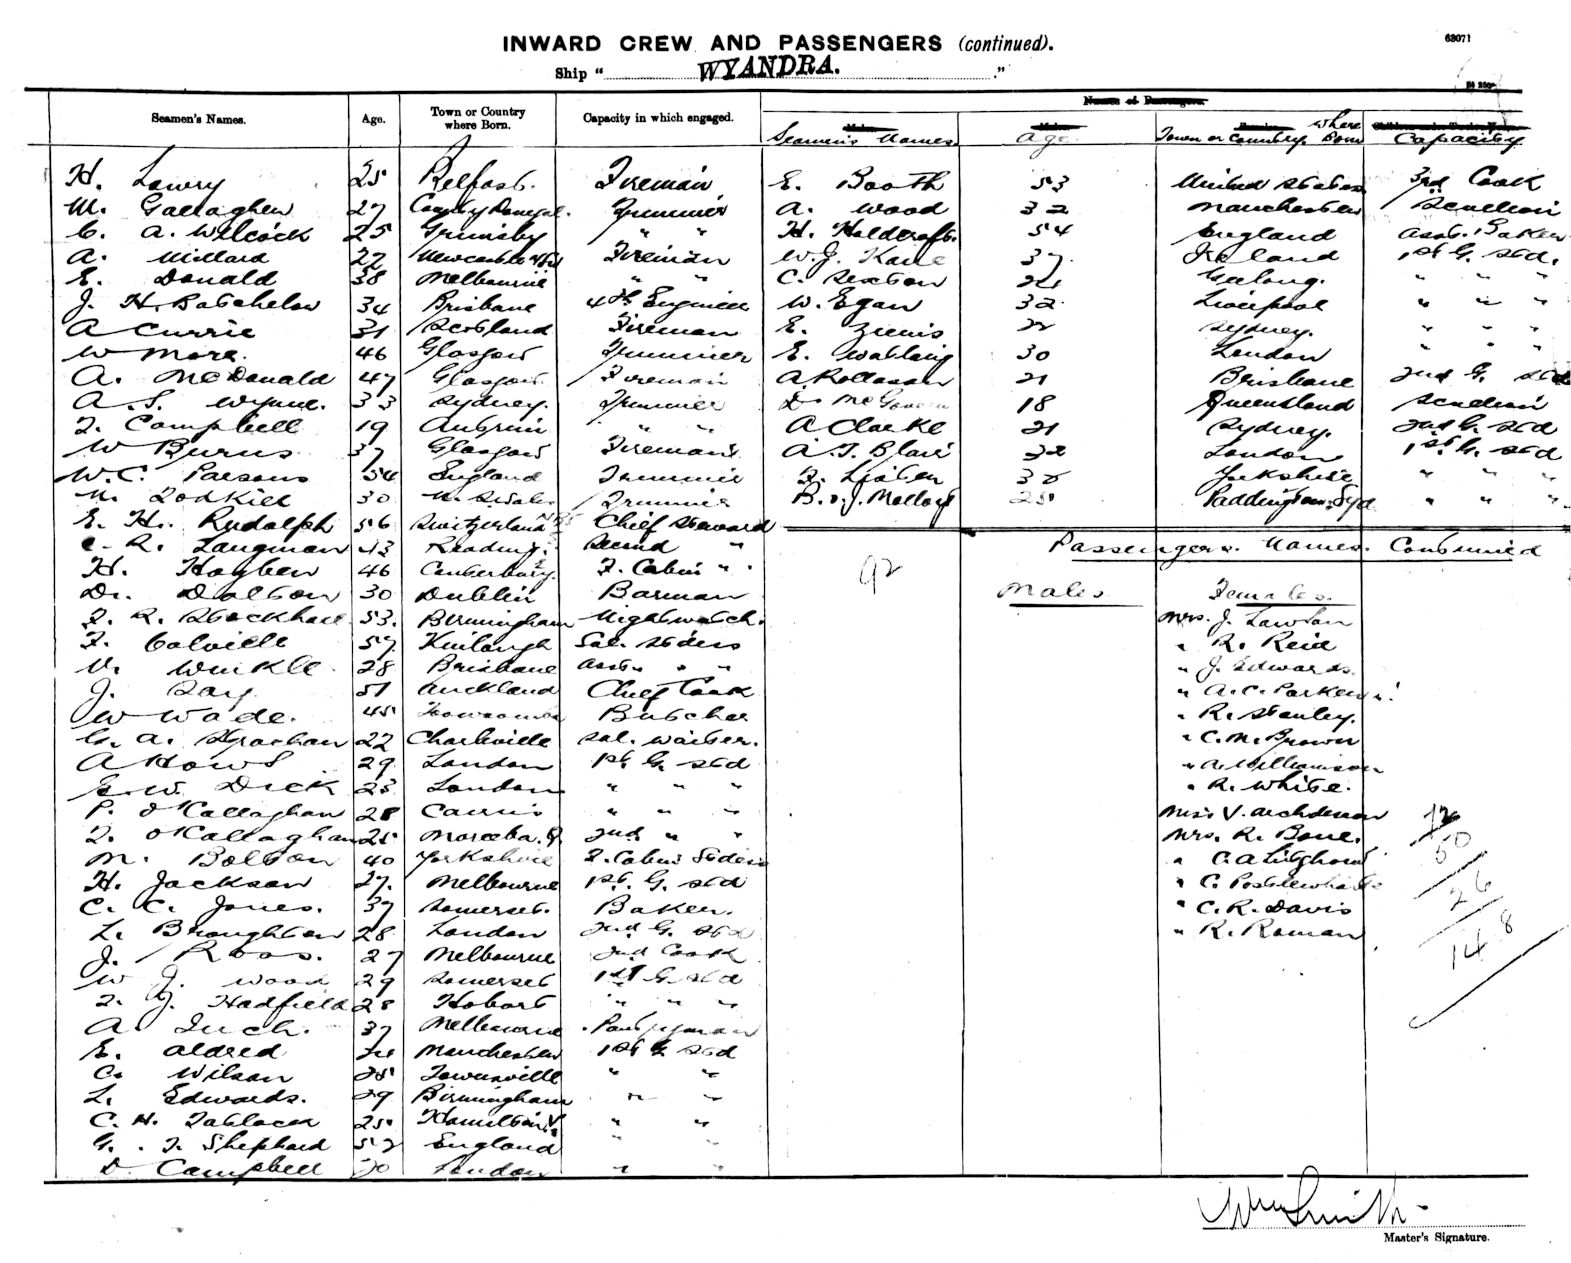 INWARD CREW AND PASSENGERS (continued).
63071
Ship " WYANDRA. "
Seamen's Names. Age. Town or Country where Born. Capacity in which engaged. Names of Passengers.
Seamen's Names Age Town or Country Where Born Capacity
H. Lowry 25 Belfast. Fireman E. Booth 53 United States 3rd Cook
M. Gallagher 27 County Donegal. Trimmer A. Wood 32 Manchester Scullion
C. A. Wilcock 25 Grimsby " " H. Holdcroft. 54 England Asst. Baker
A. Millard 27 Newcastle Fireman W. J. Kane 37. Ireland 1st G. Std.
E. Donald 38 Melbourne " " C. Sexton Geelong. " " "
J. H. Batchelor 34 Brisbane 4th Engineer W. Egan 32 Liverpool " " "
A Currie 31 Scotland Fireman E. Sydney. " " "
W More. 46 Glasgow Trimmer E. Watling 30 London " " "
A. McDonald 47 Glasgow. Fireman A Rollason 21 Brisbane 2nd G. Std
A. S. Wynne. 33 Sydney. Trimmer D. McGovern 18 Queensland Scullion
F. Campbell 19 Antrim " " A Clarke 21 Sydney. 2nd G. Std
W Burns 37 Glasgow Fireman A. T. Blair 32 London 1st G. Std
W. C. Parsons 54 England Trimmer F. 30 Yorkshire " " "
30 N. S. Wales Trimmer B. J. Molloy 25 Paddington. Syd " " "
E. H. Rudolph 56 Switzerland Chief Steward
C. R. Langman 43 Reading. Second " Passengers. Names. Continued
H. Hogben 46 Canterbury. F. Cabin " 92
D. Dalton 30 Dublin Barman Males Females.
F. R. Stockhall 53. Birmingham Nightwatch. Mrs. J. Lawson
F. Colville 57 Sal. Stdess " R. Reid
V. Winkle. 28 Brisbane Asst. " " " J. Edwards.
J. Day. 51 Auckland Chief Cook " A. C. Parker
W Wade. 45 Toowoomba Butcher " R. Stanley.
G. A. Strachan 22 Charleville Sal. Waiter. " C. M. Brown
A Hows 29 London 1st G. Std " A. Williamson
G. W. Dick 25 London " " " " R. White.
P. O'Callaghan 28 Cairns " " " Miss V. Archdeacon 12
T. O'Callaghan 25 Mareeba. Q 2nd " " Mrs. R. Bone. 50
M. Bolton 40 Yorkshire F. Cabin Stdess " C. A
H. Jackson 27. Melbourne 1st. G. Std " C. Postlewhaite 26
C. C. Jones. 37 Somerset. Baker. " C. R. Davis
L. Broughton 28 London 2nd G. Std " R. Roman 148
J. Ross. 27 Melbourne 2nd Cook
W J. Wood 29 Somerset 1st G. Std
F. J. Hadfield 28 Hobart " " "
A. Tuch. 37 Melbourne Pantryman
E. Aldred Manchester 1st G Std
C. Wilson 25 Townsville " "
L. Edwards. 29 Birmingham " "
C. H. Tatlock 25 Hamilton V. " "
G. F. Shephard 52 England " "
D. Campbell 20 London " "
Wm Smith
Master's Signature.